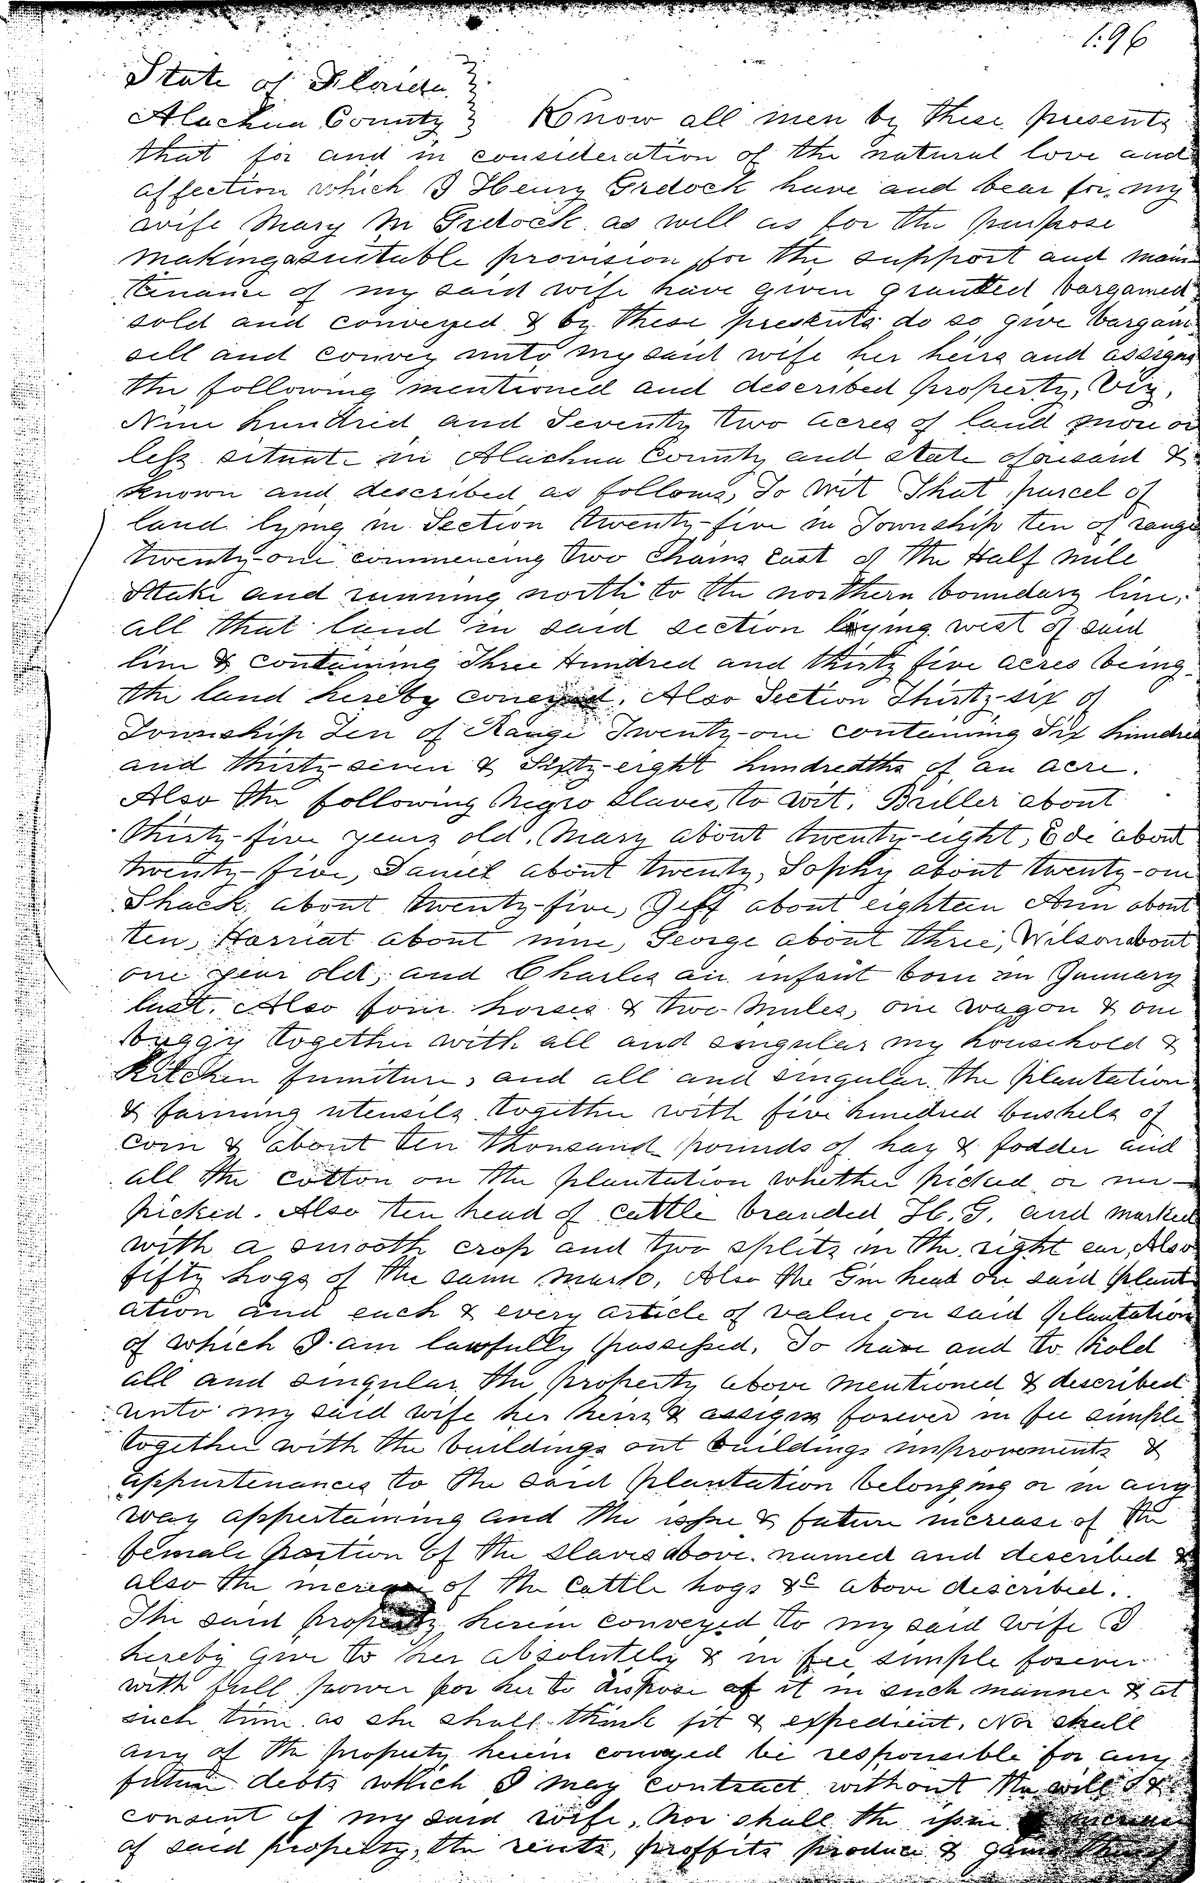 196
State of Florida
Alachua County } Know all men by these presents
that for and in consideration of the natural love and
affection which I Henry Gredock have and bear for my
wife Mary M Gredock as well as for the purpose
making a suitable provision for the support and main-
tenance of my said wife have given granted bargained
sold and conveyed & by these presents do so give bargain
sell and convey unto my said wife her heirs and assigns
the following mentioned and described property, Viz,
Nine hundred and Seventy two acres of land more or
less situate in Alachua County and state aforesaid &
known and described as follows, To Wit That parcel of
land lying in Section twenty-five in Township ten of range
twenty-one commencing two chains East of the Half mile
Stake and running north to the northern boundary line,
all that land in said section lying west of said
line & containing Three Hundred and thirty five acres being
the land hereby coneyed. Also Section Thirty-six of
Township Ten of Range Twenty-one containing Six hundred
and thirty-seven & Sixty-eight hundredths of an acre.
Also the following Negro Slaves, to wit. Briller about
thirty-five years old, Mary about twenty-eight, Ede about
twenty-five, Daniel about twenty, Sophy about twenty-one
Shack about twenty-five, Jeff about eighteen Ann about
ten, Harriat about nine, George about three, Wilson about
one year old, and Charles an infant born in January
last. Also four horses & two mules, one wagon & one
buggy together with all and singular my household &
Kitchen furniture, and all and singular the plantation
& farming utensils together with five hundred bushels of
corn & about ten thousand pounds of hay & fodder and
all the cotton on the plantation whether picked or un-
picked. Also ten head of cattle branded H. G. and marked
with a smooth crop and two splits in the right ear, Also
fifty hogs of the same mark, Also the Gin head on said plant
ation and each & every article of value on said plantation
of which I am lawfully possessed, To have and to hold
all and singular the property above mentioned & described
unto my said wife her heirs & assigns forever in fee simple
together with the buildings out buildings improvements &
appurtenances to the said plantation belonging or in any
way appertaining and the issue & future increase of the
female portion of the slaves above named and described &
also the increase of the cattle hogs &c above described.
The said property herein conveyed to my said wife I
hereby give to her absolutely & in fee simple forever
with full power for her to dispose of it in such manner & at
such time as she shall think fit & expedient. Nor shall
any of the property herein conveyed be responsible for any
future debts which I may contract without the will &
consent of my said wife, Nor shall the issue & increase
of said property, the rents, proffits produce & gains thereof